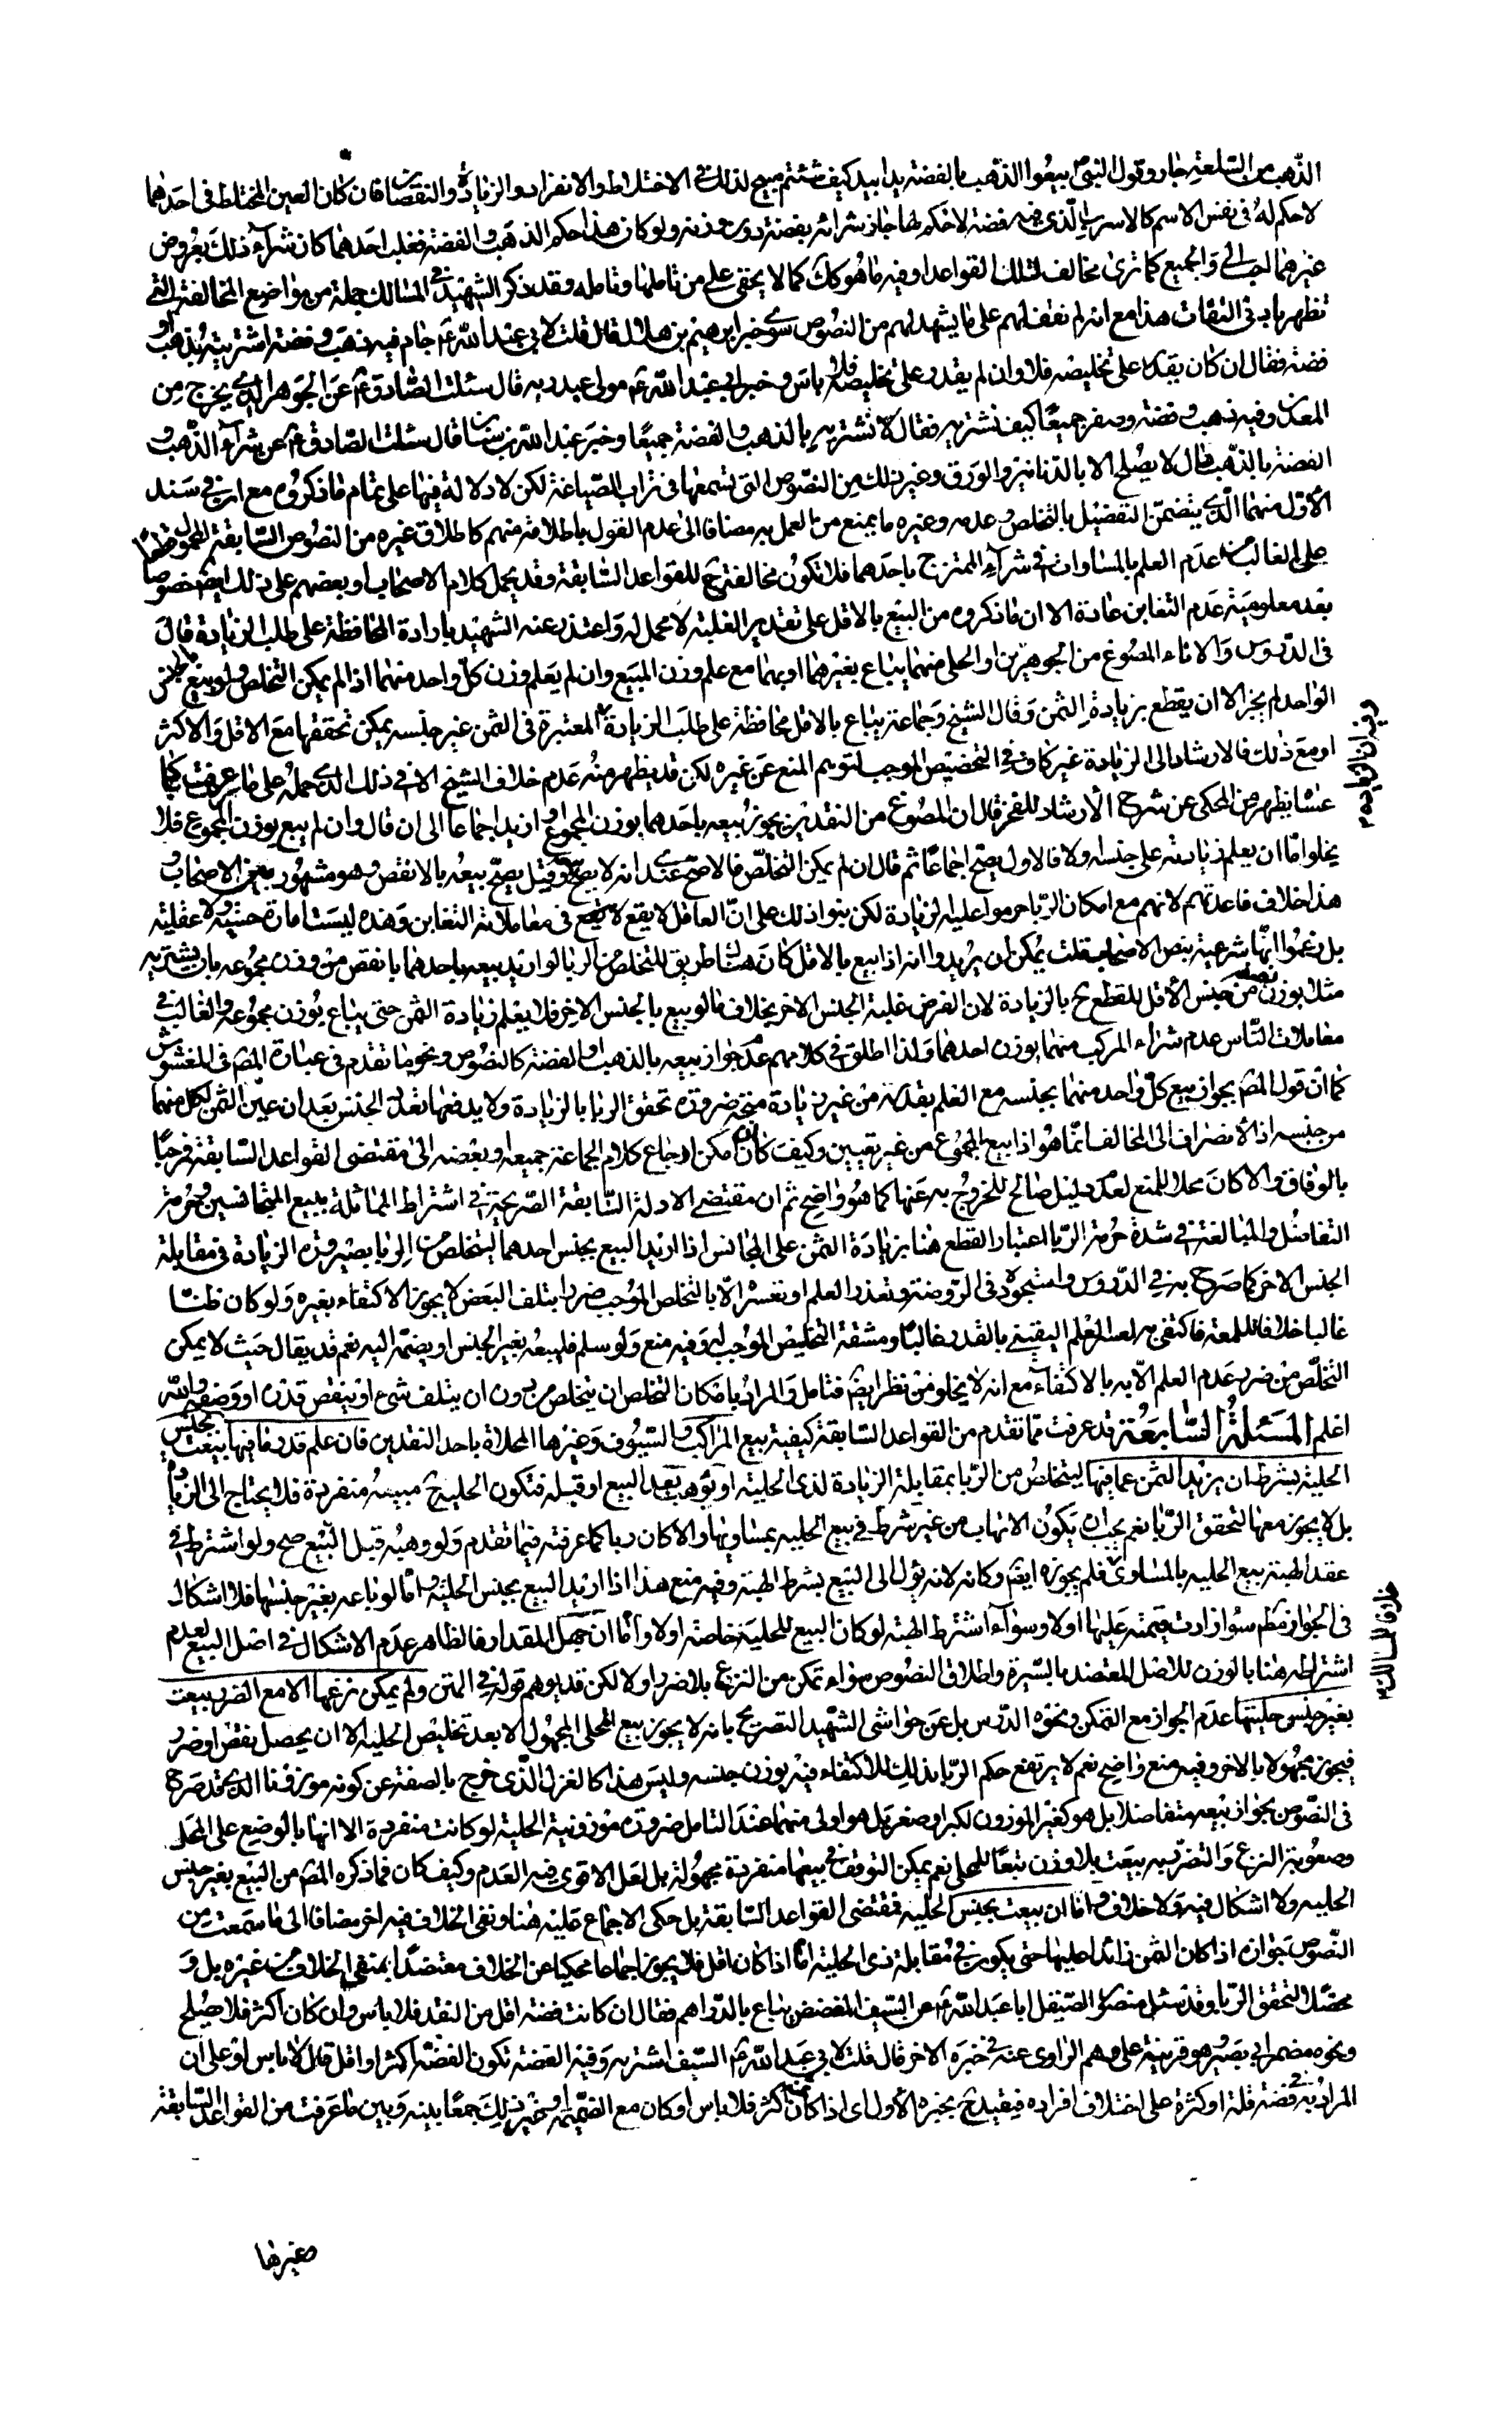 الذهب من السلعة جاز وقول النبي ص بيعوا الذهب بالفضة يدا بيد كيف شئتم مبيح لذلك في الاختلاط والانفراد والزيادة والنقصان فان كان العين المختلط في احدهما
لا حكم له في نفس الاسم كالاسرب الذي فيه فضة لا حكم لها جاز شرائه بفضة دون وزنه ولو كان هذا حكم الذهب والفضة فغلب احدهما كان شراء ذلك بعروض
غيرهما احب الي والجميع كما ترى مخالف لتلك القواعد او فيه ما هو كك كما لا يخفى على من تاملها وتامله وقد ذكر الشهيد في المسالك جملة من مواضع المخالفة التي
تظهر بادنى التفات هذا مع انه لم نقف لهم على ما يشهد لهم من النصوص سوى خبر ابرهيم بن هلال قال قلت لابي عبد الله ع جام فيه ذهب وفضة اشتريته بذهب او
فضة فقال ان كان يقدر على تخليصه فلا وان لم يقدر على تخليصه فلا باس وخبر ابي عبد الله ع مولى عبد ربه قال سئلت الصادق ع عن الجوهر الذي يخرج من
المعدن وفيه ذهب وفضة وصفر جميعا كيف نشتريه فقال لا تشتريه بالذهب والفضة جميعا وخبر عبد الله بن سنان قال سئلت الصادق ع عن شراء الذهب و
الفضة بالذهب قال لا يصلح الا بالدنانير والورق وغير ذلك من النصوص التي تسمعها في تراب الصياغة لكن لا دلالة فيها على تمام ما ذكروه مع ان في سند
الاول منهما الذي يتضمن التفصيل بالتخلص وعدمه وغيره ما يمنع من العمل به مضافا الى عدم القول باطلاقه منهم كاطلاق غيره من النصوص السابقة المحمول قطعا
على الغالب من عدم العلم بالمساواة في شراء الممتزج باحدهما فلا تكون مخالفة ح للقواعد السابقة وقد يحمل كلام الاصحاب او بعضهم على ذلك ايض خصوصا
بعد معلومية عدم التغابن عادة الا ان ما ذكروه من البيع بالاقل على تقدير الغلبة لا محمل له واعتذر عنه الشهيد بارادة المحافظة على طلب الزيادة قال
في الدروس والاناء المصوغ من الجوهرين او الحلي منهما يباع بغيرهما او بهما مع علم وزن المبيع وان لم يعلم وزن كل واحد منهما اذا لم يمكن التخلص ولو بيع بالجنس
الواحد لم يجز الا ان يقطع بزيادة الثمن وقال الشيخ وجماعة يباع بالاقل محافظة على طلب الزيادة المعتبرة في الثمن غير جنسه يمكن تحققها مع الاقل والاكثر
او مع ذلك فالارشاد الى الزيادة غير كاف في التخصيص الموجب لتوهم المنع عن غيره لكن قد يظهر منه عدم خلاف الشيخ الا في ذلك الذي حمله على ما عرفت كما
عساه يظهر من المحكي عن شرح الارشاد للفخر قال ان المصوغ من النقدين يجوز بيعه باحدهما بوزن المجموع او ازيد اجماعا الى ان قال وان لم يبع بوزن المجموع فلا
يخلو اما ان يعلم زيادته على جنسه او لا فالاول يصح اجماعا ثم قال ان لم يمكن التخلص فالاصح عندي انه لا يصح وقيل يصح بيعه بالانقص وهو مشهور بين الاصحاب و
هذا خلاف قاعدتهم لانهم مع امكان الربا حرموا عليه الزيادة لكن بنوا ذلك على ان العاقل لا يقع في معاملاته التغابن وهذه ليست امارة حسية ولا عقلية
بل زعموا انها شرعية بنص الاصحاب قلت يمكن ان يريدوا انه اذا بيع بالاقل كان هناك طريق للتخلص من الربا لو اريد بيعه باحدهما بانقص من وزن مجموعه بان يشتريه
مثلا بوزن نصفه من جنس الاقل للقطع ح بالزيادة لان الفرض غلبة الجنس الاخر بخلاف ما لو بيع بالجنس الاخر فلا يعلم زيادة الثمن حتى يباع بوزن مجموعه والغالب في
معاملات الناس عدم شراء المركب منهما بوزن احدهما ولذا اطلق في كلامهم عدم جواز بيعه بالذهب او الفضة كالنصوص ونحو ما تقدم في عبارة المص في المغشوش
كما ان قول المص بجواز بيع كل واحد منهما بجنسه مع العلم بقدره من غير زيادة متجه ضرورة تحقق الربا بالزيادة ولا يدفعها تعدد الجنس بعد ان عين الثمن لكل منهما
من جنسه اذ الانصراف الى المخالف انما هو اذا بيع المجموع من غير تعيين وكيف كان فان امكن ارجاع كلام الجماعة جميعه او بعضه الى مقتضى القواعد السابقة فمرحبا
بالوفاق والا كان محلا للمنع لعدم دليل صالح للخروج به عنها كما هو واضح ثم ان مقتضى الادلة السابقة الصريحة في اشتراط المماثلة ببيع المتجانسين وحرمة
التفاضل والمبالغة في شدة حرمة الربا اعتبار القطع هنا بزيادة الثمن على المجانس اذا اريد البيع بجنس احدهما ليتخلص من الربا بصيرورة الزيادة في مقابلة
الجنس الاخر كما صرح به في الدروس واستجوده في الروضة وتعذر العلم او تعسره الا بالتخلص الموجب ضررا بتلف البعض لا يجوز الاكتفاء بغيره ولو كان ظنا
غالبا خلافا للمعة فاكتفى به لعسر العلم اليقيني بالقدر غالبا ومشقة التخليص الموجب له وفيه منع ولو سلم فليبعه بغير الجنس او يضمه اليه نعم قد يقال حيث لا يمكن
التخلص من ضرر عدم العلم الا به بالاكتفاء مع انه لا يخلو من نظر ايض فتامل والمراد بامكان التخلص ان يتخلص من دون ان يتلف شيء او ينقص قدره او وصفه والله
اعلم المسئلة السابعة قد عرفت مما تقدم من القواعد السابقة كيفية بيع المراكب والسيوف وغيرها المحلاة باحد النقدين فان علم قدر ما فيها بيعت بجنس
الحلية بشرط ان يزيد الثمن عما فيها ليتخلص من الربا بمقابلة الزيادة لذي الحلية او توهب بعد البيع او قبله فتكون الحلية ح مبيعة منفردة فلا يحتاج الى الزيادة
بل لا يجوز معها لتحقق الربا نعم يجب ان يكون الانهاب من غير شرط في بيع الحلية بمساويها والا كان ربا كما عرفته فيما تقدم ولو وهبه قبل البيع صح ولو اشترط في
عقد الهبة بيع الحلية بالمساوي فلم يجوزه ايض وكانه لانه يؤل الى البيع بشرط الهبة وفيه منع هذا اذا اريد البيع بجنس الحلية واما لو باعه بغير جنسها فلا اشكال
في الجواز مطم سواء زادت قيمته عليها او لا وسواء اشترط الهبة لو كان البيع للحلية خاصة او لا واما ان جهل المقدار فالظاهر عدم الاشكال في اصل البيع لعدم
اشتراطه هنا بالوزن للاصل المعتضد بالسيرة واطلاق النصوص سواء تمكن من النزع بلا ضرر او لا لكن قد يوهم قوله في المتن ولم يمكن نزعها الا مع الضرر بيعت
بغير جنس حليتها عدم الجواز مع التمكن ونحوه الدرس بل عن حواشي الشهيد التصريح بانه لا يجوز بيع المحلى المجهول الا بعد تخليص الحلية الا ان يحصل نقض او ضرر
فيجوز مجهولا بالاخر وفيه منع واضح نعم لا يرتفع حكم الربا بذلك للاكتفاء فيه بوزن جنسه وليس هذا كالغزل الذي خرج بالصفة عن كونه موزونا الذي قد صرح
في النصوص بجواز بيعه متفاضلا بل هو كغير الموزون لكبر او صغر بل هو اولى منهما عند التامل ضرورة موزونية الحلية لو كانت منفردة الا انها بالوضع على المحل
وصعوبة النزع والتضرر به بيعت بلا وزن تبعا للمحلى نعم يمكن التوقف في بيعها منفردة مجهولة بل لعل الاقوى فيه العدم وكيف كان فما ذكره المص من البيع بغير جنس
الحلية ولا اشكال فيه ولا خلاف واما ان بيعت بجنس الحلية فمقتضى القواعد السابقة بل حكى الاجماع عليه هنا ونفى الخلاف فيه اخر مضافا الى ما سمعت من
النصوص جوازه اذا كان الثمن زائدا عليها حتى يكون في مقابلة ذي الحلية اما اذا كان اقل فلا يجوز اجماعا محكيا عن الخلاف معتضدا بنفي الخلاف من غيره بل و
محصلا لتحقق الربا وقد سئل منصور الصيقل ابا عبد الله ع عن السيف المفضض يباع بالدراهم فقال ان كانت فضته اقل من النقد فلا باس وان كان اكثر فلا يصلح
ونحوه مضمر ابي بصير وهو قرينة على وهم الراوي عنه في خبره الاخر قال قلت لابي عبد الله ع السيف اشتريه وفيه الفضة تكون الفضة اكثر او اقل قال لا باس او على ان
المراد به فضته قلة او كثرة على اختلاف افراده فيقيد ح بخبره الاول اي اذا كان ثمنه اكثر فلا باس او كان مع الضميمة او غير ذلك جمعا بينه وبين ما عرفت من القواعد السابقة
وغيرها